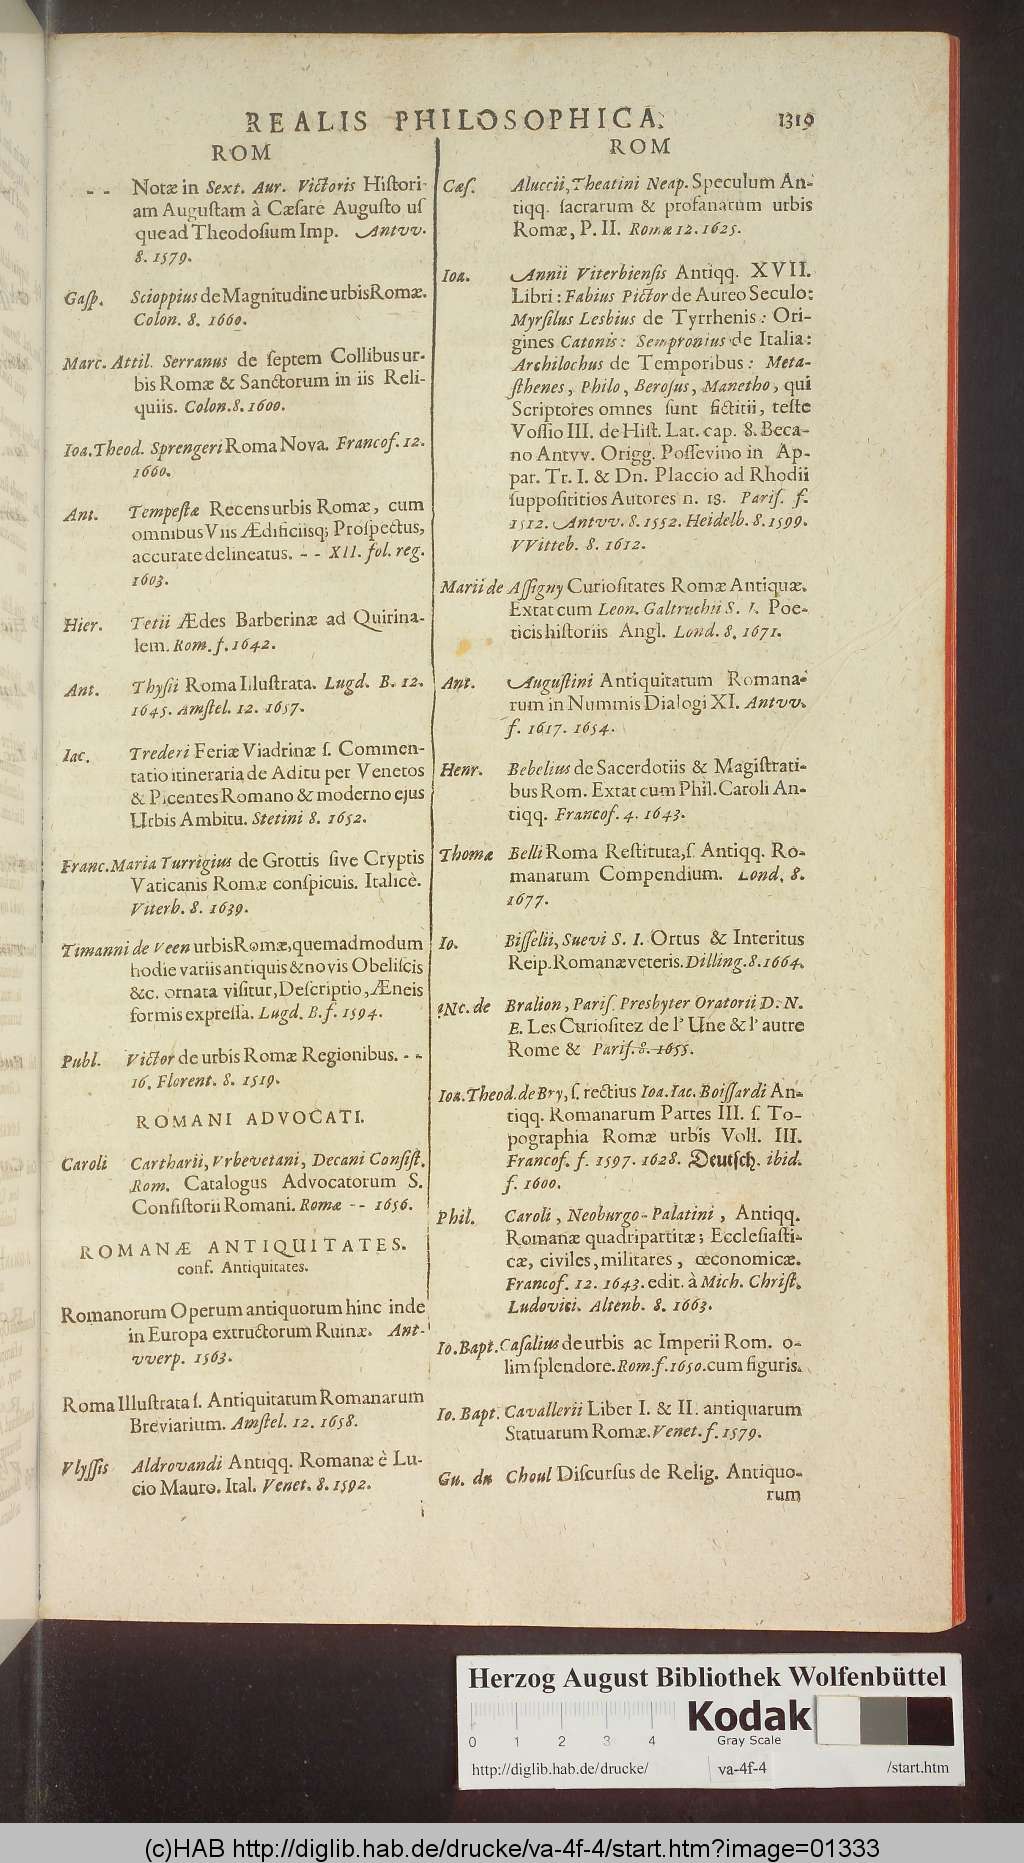 REALIS PHILOSOPHICA. 1319
ROM
- - Notæ in Sext. Aur. Victoris Histori-
am Augustam à Cæsare Augusto us
que ad Theodosium Imp. Antvv.
8. 1579.
Gasp. Scioppius de Magnitudine urbis Romæ.
Colon. 8. 1660.
Marc. Attil. Serranus de septem Collibus ur-
bis Romæ & Sanctorum in iis Reli-
quiis. Colon. 8. 1600.
Ioa. Theod. Sprengeri Roma Nova. Francof. 12.
1660.
Ant. Tempestæ Recens urbis Romæ, cum
omnibus Viis Ædificiisq; Prospectus,
accurate delineatus. - - XII. fol. reg.
1603.
Hier. Tetii Ædes Barberinæ ad Quirina-
lem. Rom. f. 1642.
Ant. Thysii Roma Illustrata. Lugd. B. 12.
1645. Amstel. 12. 1657.
Iac. Trederi Feriæ Viadrinæ s. Commen-
tatio itineraria de Aditu per Venetos
& Picentes Romano & moderno ejus
Urbis Ambitu. Stetini 8. 1652.
Franc. Maria Turrigius de Grottis sive Cryptis
Vaticanis Romæ conspicuis. Italicè.
Viterb. 8. 1639.
Timanni de Veen urbis Romæ, quemadmodum
hodie variis antiquis & novis Obeliscis
&c. ornata visitur, Descriptio, Æneis
formis expressa. Lugd. B. f. 1594.
Publ. Victor de urbis Romæ Regionibus. - -
16. Florent. 8. 1519.
ROMANI ADVOCATI.
Caroli Cartharii, Vrbevetani, Decani Consist.
Rom. Catalogus Advocatorum S.
Consistorii Romani. Romæ - - 1656.
ROMANÆ ANTIQUITATES.
conf. Antiquitates.
Romanorum Operum antiquorum hinc inde
in Europa extructorum Ruinæ. Ant-
vverp. 1563.
Roma Illustrata s. Antiquitatum Romanarum
Breviarium. Amstel. 12. 1658.
Vlyssis Aldrovandi Antiqq. Romanæ è Lu-
cio Mauro. Ital. Venet. 8. 1592.
ROM
Cæs. Aluccii, Theatini Neap. Speculum An-
tiqq. sacrarum & profanarum urbis
Romæ, P. II. Romæ 12. 1625.
Ioa. Annii Viterbiensis Antiqq. XVII.
Libri: Fabius Pictor de Aureo Seculo:
Myrsilus Lesbius de Tyrrhenis: Ori-
gines Catonis: Sempronius de Italia:
Archilochus de Temporibus: Meta-
sthenes, Philo, Berosus, Manetho, qui
Scriptores omnes sunt fictitii, teste
Vossio III. de Hist. Lat. cap. 8. Beca-
no Antvv. Origg. Possevino in Ap-
par. Tr. I. & Dn. Placcio ad Rhodii
supposititios Autores n. 18. Paris. f.
1512. Antvv. 8. 1552. Heidelb. 8. 1599.
VVitteb. 8. 1612.
Marii de Assigny Curiositates Romæ Antiquæ.
Extat cum Leon. Galtruchii S. I. Poe-
ticis historiis Angl. Lond. 8. 1671.
Ant. Augustini Antiquitatum Romana-
rum in Nummis Dialogi XI. Antvv.
f. 1617. 1654.
Henr. Bebelius de Sacerdotiis & Magistrati-
bus Rom. Extat cum Phil. Caroli An-
tiqq. Francof. 4. 1643.
Thomæ Belli Roma Restituta, s. Antiqq. Ro-
manarum Compendium. Lond. 8.
1677.
Io. Bisselii, Suevi S. I. Ortus & Interitus
Reip. Romanæ veteris. Dilling. 8. 1664.
Nc. de Bralion, Paris. Presbyter Oratorii D. N.
E. Les Curiositez de l' Une & l' autre
Rome & Paris. 8. 1655.
Ioa. Theod. de Bry, s. rectius Ioa. Iac. Boissardi An-
tiqq. Romanarum Partes III. s. To-
pographia Romæ urbis Voll. III.
Francof. f. 1597. 1628. Deutsch. ibid.
f. 1600.
Phil. Caroli, Neoburgo-Palatini, Antiqq.
Romanæ quadripartitæ; Ecclesiasti-
cæ, civiles, militares, œconomicæ.
Francof. 12. 1643. edit. à Mich. Christ.
Ludovici. Altenb. 8. 1663.
Io. Bapt. Casalius de urbis ac Imperii Rom. o-
lim splendore. Rom. f. 1650. cum figuris.
Io. Bapt. Cavallerii Liber I. & II. antiquarum
Statuarum Romæ. Venet. f. 1579.
Gu. du Choul Discursus de Relig. Antiquo-
rum
Herzog August Bibliothek Wolfenbüttel
0 1 2 3 4
Kodak
Gray Scale
http://diglib.hab.de/drucke/ va-4f-4 /start.htm
(c)HAB http://diglib.hab.de/drucke/va-4f-4/start.htm?image=01333